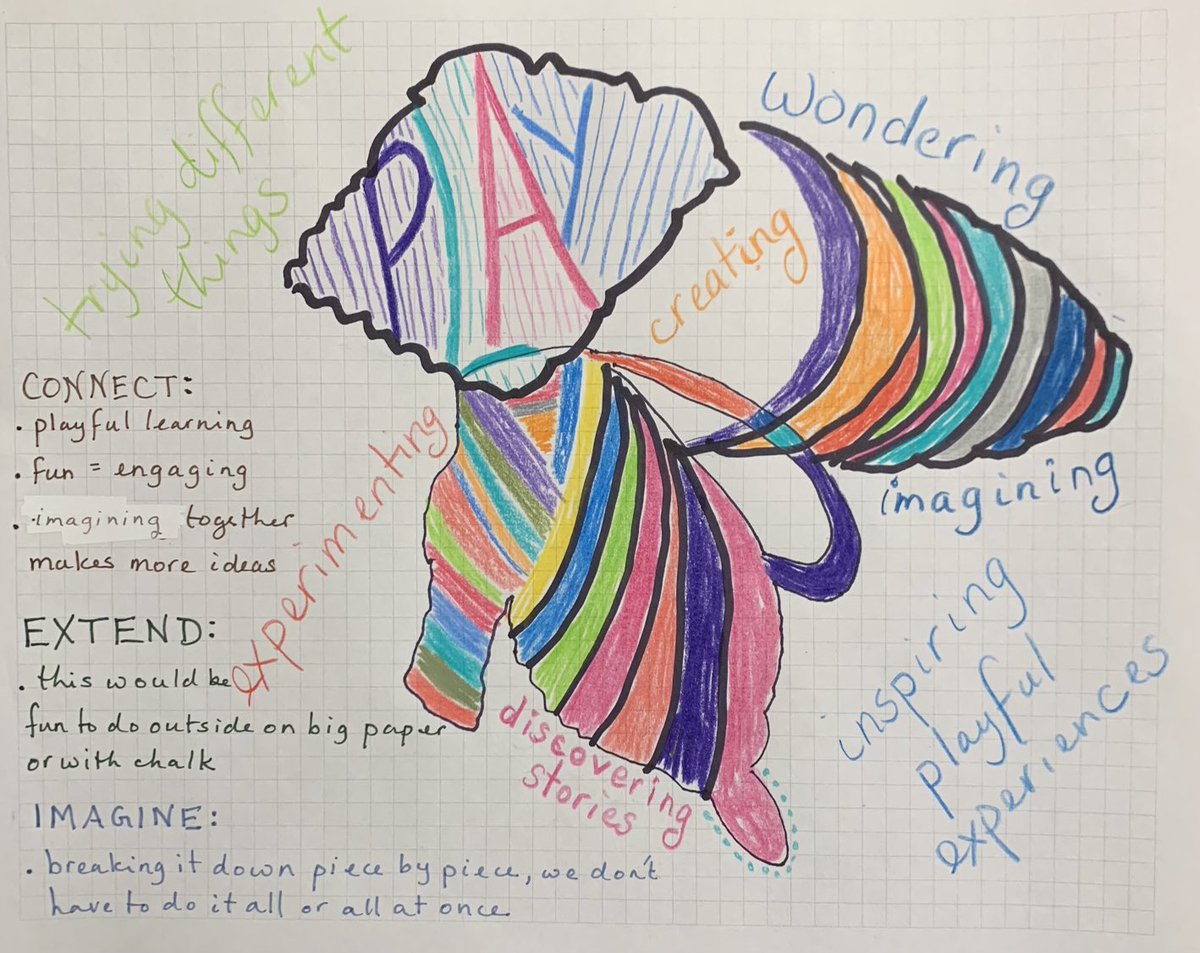 trying different
things
PLAY
wondering
creating
imagining
experimenting
CONNECT:
. playful learning
. fun = engaging
. imagining together
makes more ideas
EXTEND:
. this would be
fun to do outside on big paper
or with chalk
IMAGINE:
. breaking it down piece by piece, we don't
have to do it all or all at once.
discovering
stories
inspiring
playful
experiences